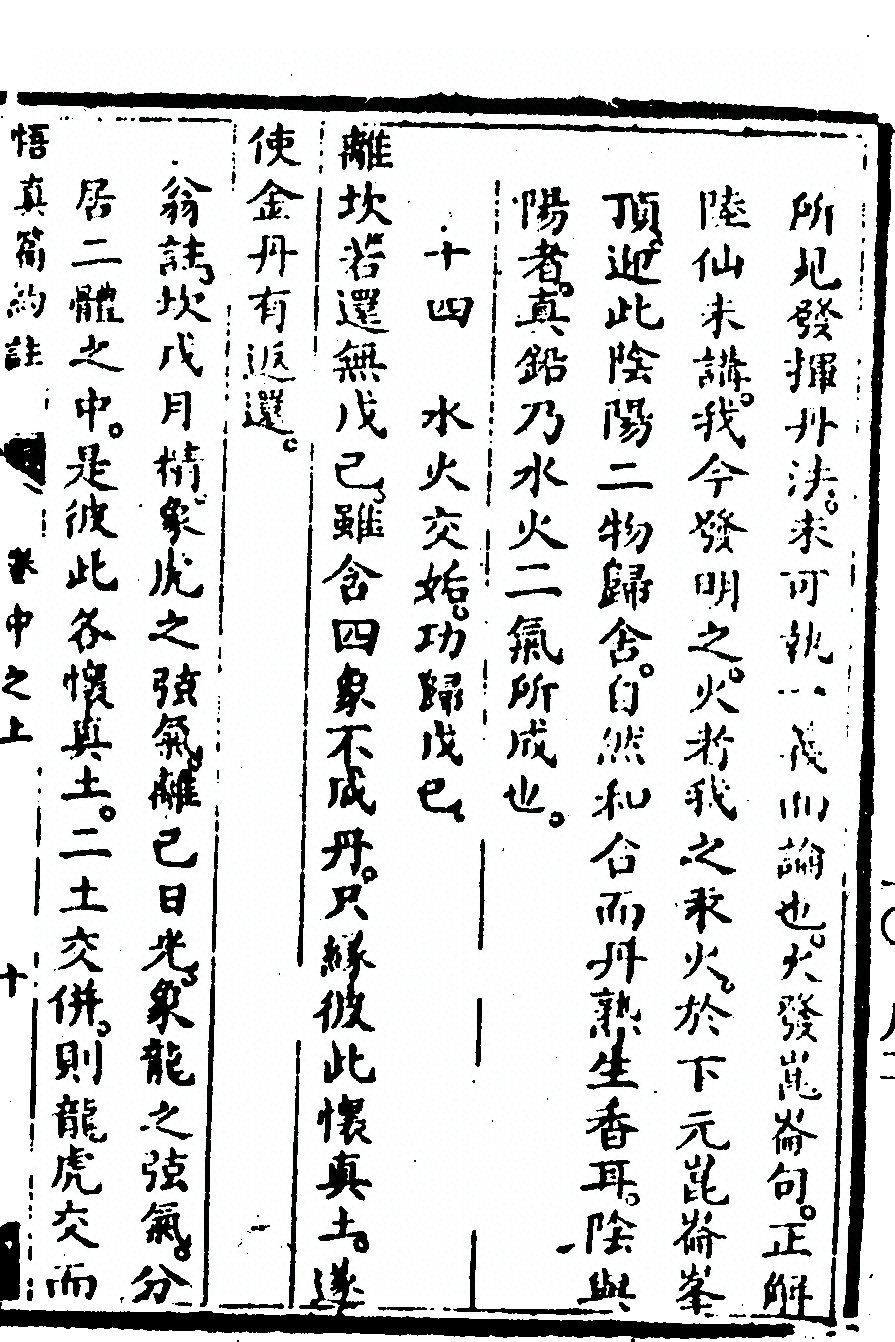 所見發揮丹法。未可執一義而論也。火發崑崙句。正解
陸仙未講。我今發明之。火者我之汞火。於下元崑崙峯
頂。迎此陰陽二物歸舍。自然和合而丹熟生香耳。陰與
陽者。真鉛乃水火二氣所成也。
十四　水火交姤。功歸戊己。
離坎若還無戊己。雖含四象不成丹。只緣彼此懷真土。遂
使金丹有返還。
翁註。坎戊月精。象虎之弦氣。離己日光。象龍之弦氣。分
居二體之中。是彼此各懷真土。二土交併。則龍虎交而
悟真篇約註　卷中之上　十